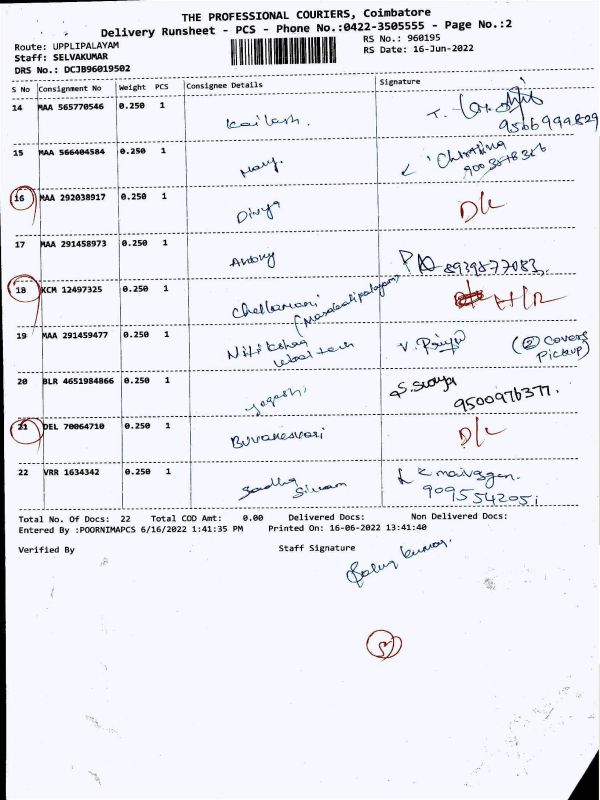 THE PROFESSIONAL COURIERS, Coimbatore
Delivery Runsheet - PCS - Phone No.:0422-3505555 - Page No.:2
Route: UPPLIPALAYAM
RS No.: 960195
Staff: SELVAKUMAR
RS Date: 16-Jun-2022
DRS No.: DCJB96019502
S No Consignment No Weight PCS Consignee Details Signature
14 MAA 565770546 0.250 1 Kailash. 9566999829
15 MAA 566404584 0.250 1 Mary.
16 MAA 292038917 0.250 1 Divya D/L
17 MAA 291458973 0.250 1 Antony 8939577083
18 KCM 12497325 0.250 1 Chellamani H/R
19 MAA 291459477 0.250 1 Nitikshaa V. Priya (2 Covers
Pickup)
20 BLR 4651984866 0.250 1 Yogash S. Surya
9500976377.
21 DEL 70064710 0.250 1 Buvaneswari D/L
22 VRR 1634342 0.250 1 Sadha Sivam
9095542051
Total No. Of Docs: 22 Total COD Amt: 0.00 Delivered Docs: Non Delivered Docs:
Entered By :POORNIMAPCS 6/16/2022 1:41:35 PM Printed On: 16-06-2022 13:41:40
Verified By Staff Signature